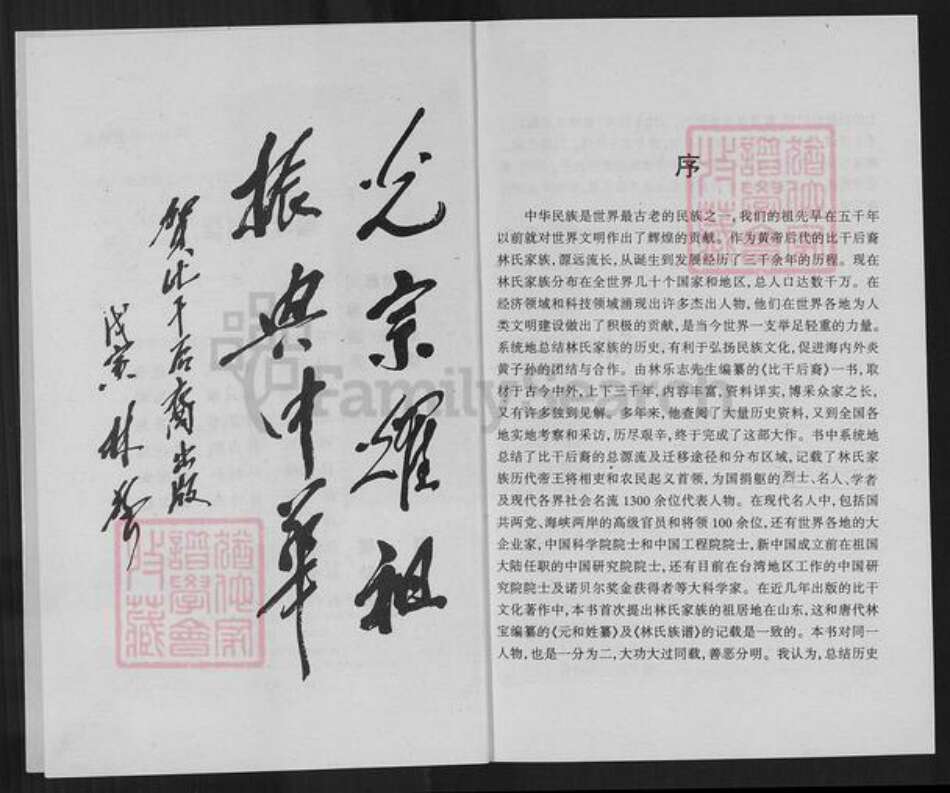 光宗耀祖
振兴中华
贺比干后裔出版
戊寅 林
犹他家
谱学会
收藏
序
犹他家
谱学会
收藏
中华民族是世界最古老的民族之一,我们的祖先早在五千年
以前就对世界文明作出了辉煌的贡献。作为黄帝后代的比干后裔
林氏家族,源远流长,从诞生到发展经历了三千余年的历程。现在
林氏家族分布在全世界几十个国家和地区,总人口达数千万。在
经济领域和科技领域涌现出许多杰出人物,他们在世界各地为人
类文明建设做出了积极的贡献,是当今世界一支举足轻重的力量。
系统地总结林氏家族的历史,有利于弘扬民族文化,促进海内外炎
黄子孙的团结与合作。由林乐志先生编纂的《比干后裔》一书,取
材于古今中外,上下三千年,内容丰富,资料详实,博采众家之长,
又有许多独到见解。多年来,他查阅了大量历史资料,又到全国各
地实地考察和采访,历尽艰辛,终于完成了这部大作。书中系统地
总结了比干后裔的总源流及迁移途径和分布区域,记载了林氏家
族历代帝王将相吏和农民起义首领,为国捐躯的烈士、名人、学者
及现代各界社会名流 1300 余位代表人物。在现代名人中,包括国
共两党、海峡两岸的高级官员和将领 100 余位,还有世界各地的大
企业家,中国科学院院士和中国工程院院士,新中国成立前在祖国
大陆任职的中国研究院院士,还有目前在台湾地区工作的中国研
究院院士及诺贝尔奖金获得者等大科学家。在近几年出版的比干
文化著作中,本书首次提出林氏家族的祖居地在山东,这和唐代林
宝编纂的《元和姓纂》及《林氏族谱》的记载是一致的。本书对同一
人物,也是一分为二,大功大过同载,善恶分明。我认为,总结历史
FamilySearch